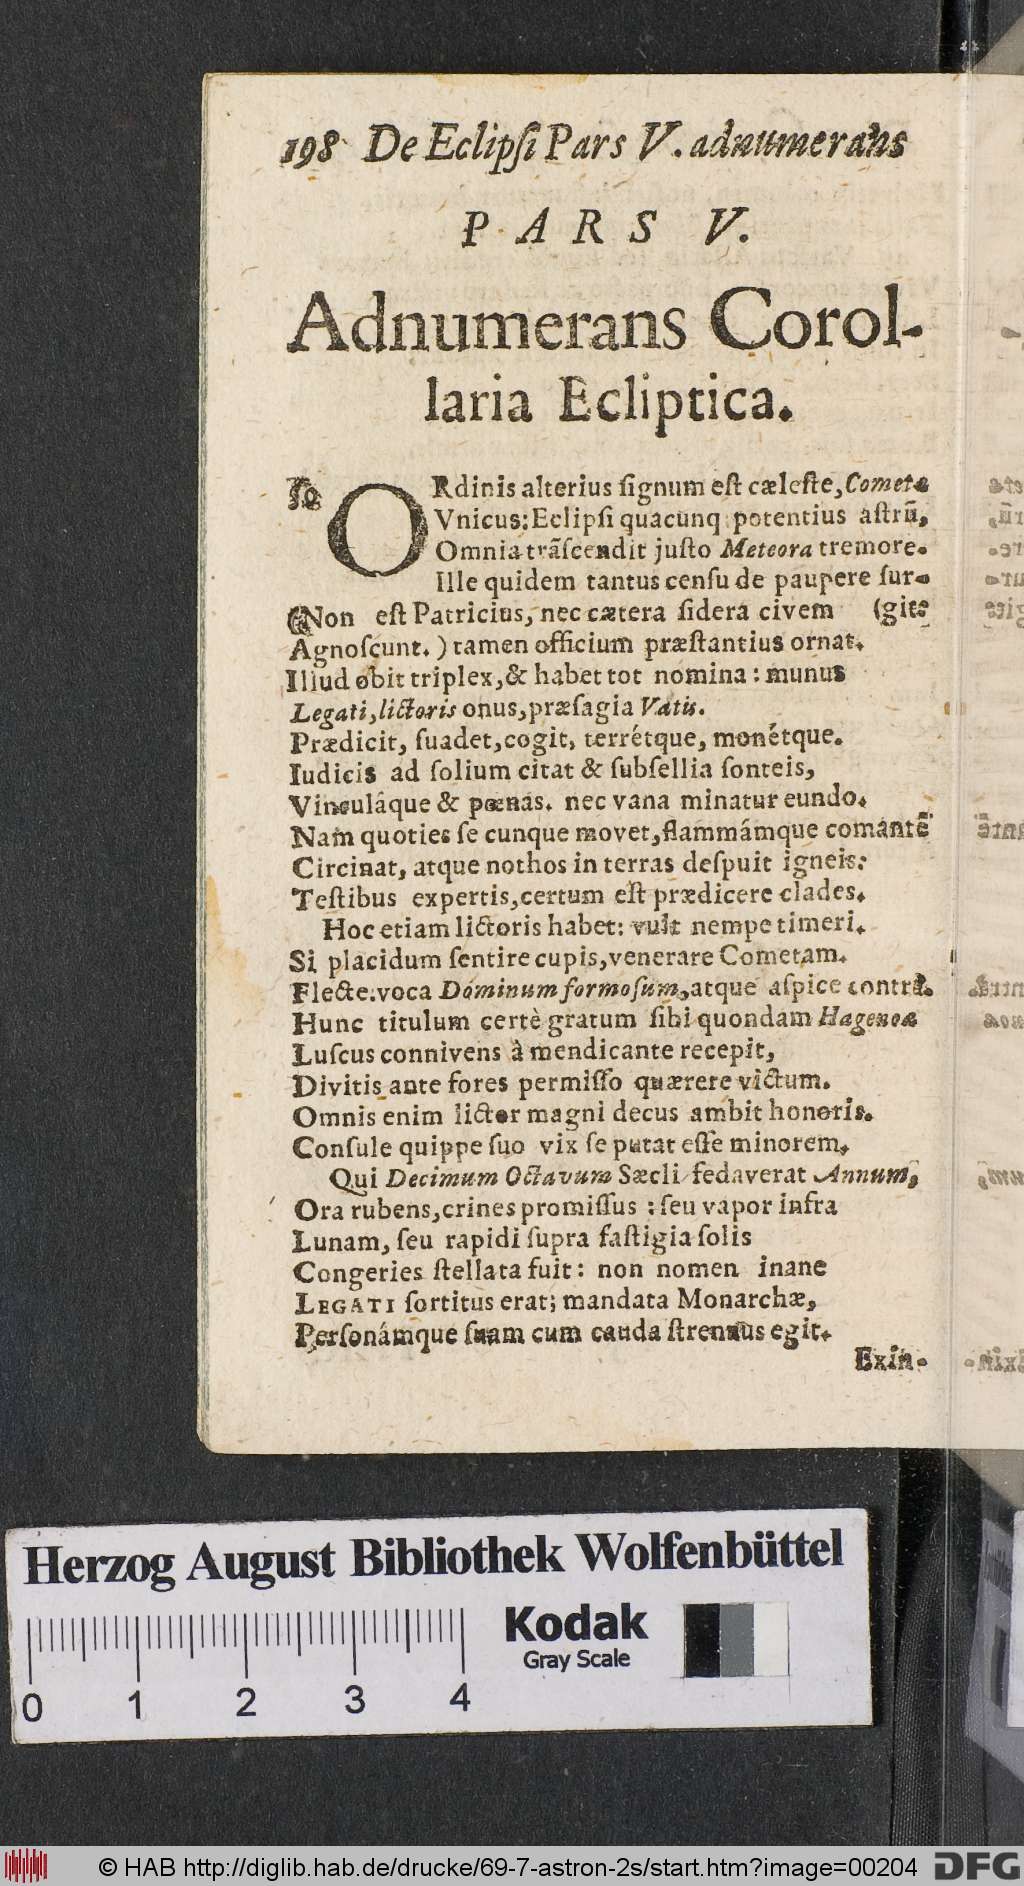 198 De Eclipſi Pars V. adnumerans
PARS V.
Adnumerans Corol-
laria Ecliptica.
ORdinis alterius ſignum eſt cæleſte, Cometæ
Vnicus: Eclipſi quacunq potentius aſtrũ,
Omnia trãſcendit juſto Meteora tremore.
Ille quidem tantus cenſu de paupere ſur-
(Non eſt Patricius, nec cætera ſidera civem (git:
Agnoſcunt.) tamen officium præſtantius ornat.
Illud obit triplex, & habet tot nomina: munus
Legati, lictoris onus, præſagia Vatis.
Prædicit, ſuadet, cogit, terrétque, monétque.
Iudicis ad ſolium citat & ſubſellia ſonteis,
Vinculáque & pœnas. nec vana minatur eundo.
Nam quoties ſe cunque movet, flammámque comantẽ
Circinat, atque nothos in terras deſpuit igneis:
Teſtibus expertis, certum eſt prædicere clades.
Hoc etiam lictoris habet: vult nempe timeri.
Si placidum ſentire cupis, venerare Cometam.
Flecte. voca Dominum formoſum, atque aſpice contrà.
Hunc titulum certè gratum ſibi quondam Hagenoæ
Luſcus connivens à mendicante recepit,
Divitis ante fores permiſſo quærere victum.
Omnis enim lictor magni decus ambit honoris.
Conſule quippe ſuo vix ſe putat eſſe minorem.
Qui Decimum Octavum Sæcli fedaverat Annum,
Ora rubens, crines promiſſus: ſeu vapor infra
Lunam, ſeu rapidi ſupra faſtigia ſolis
Congeries ſtellata fuit: non nomen inane
LEGATI ſortitus erat; mandata Monarchæ,
Perſonámque ſuam cum cauda ſtrennus egit.
Exin-
Herzog August Bibliothek Wolfenbüttel
Kodak
Gray Scale
0 1 2 3 4
© HAB http://diglib.hab.de/drucke/69-7-astron-2s/start.htm?image=00204
DFG